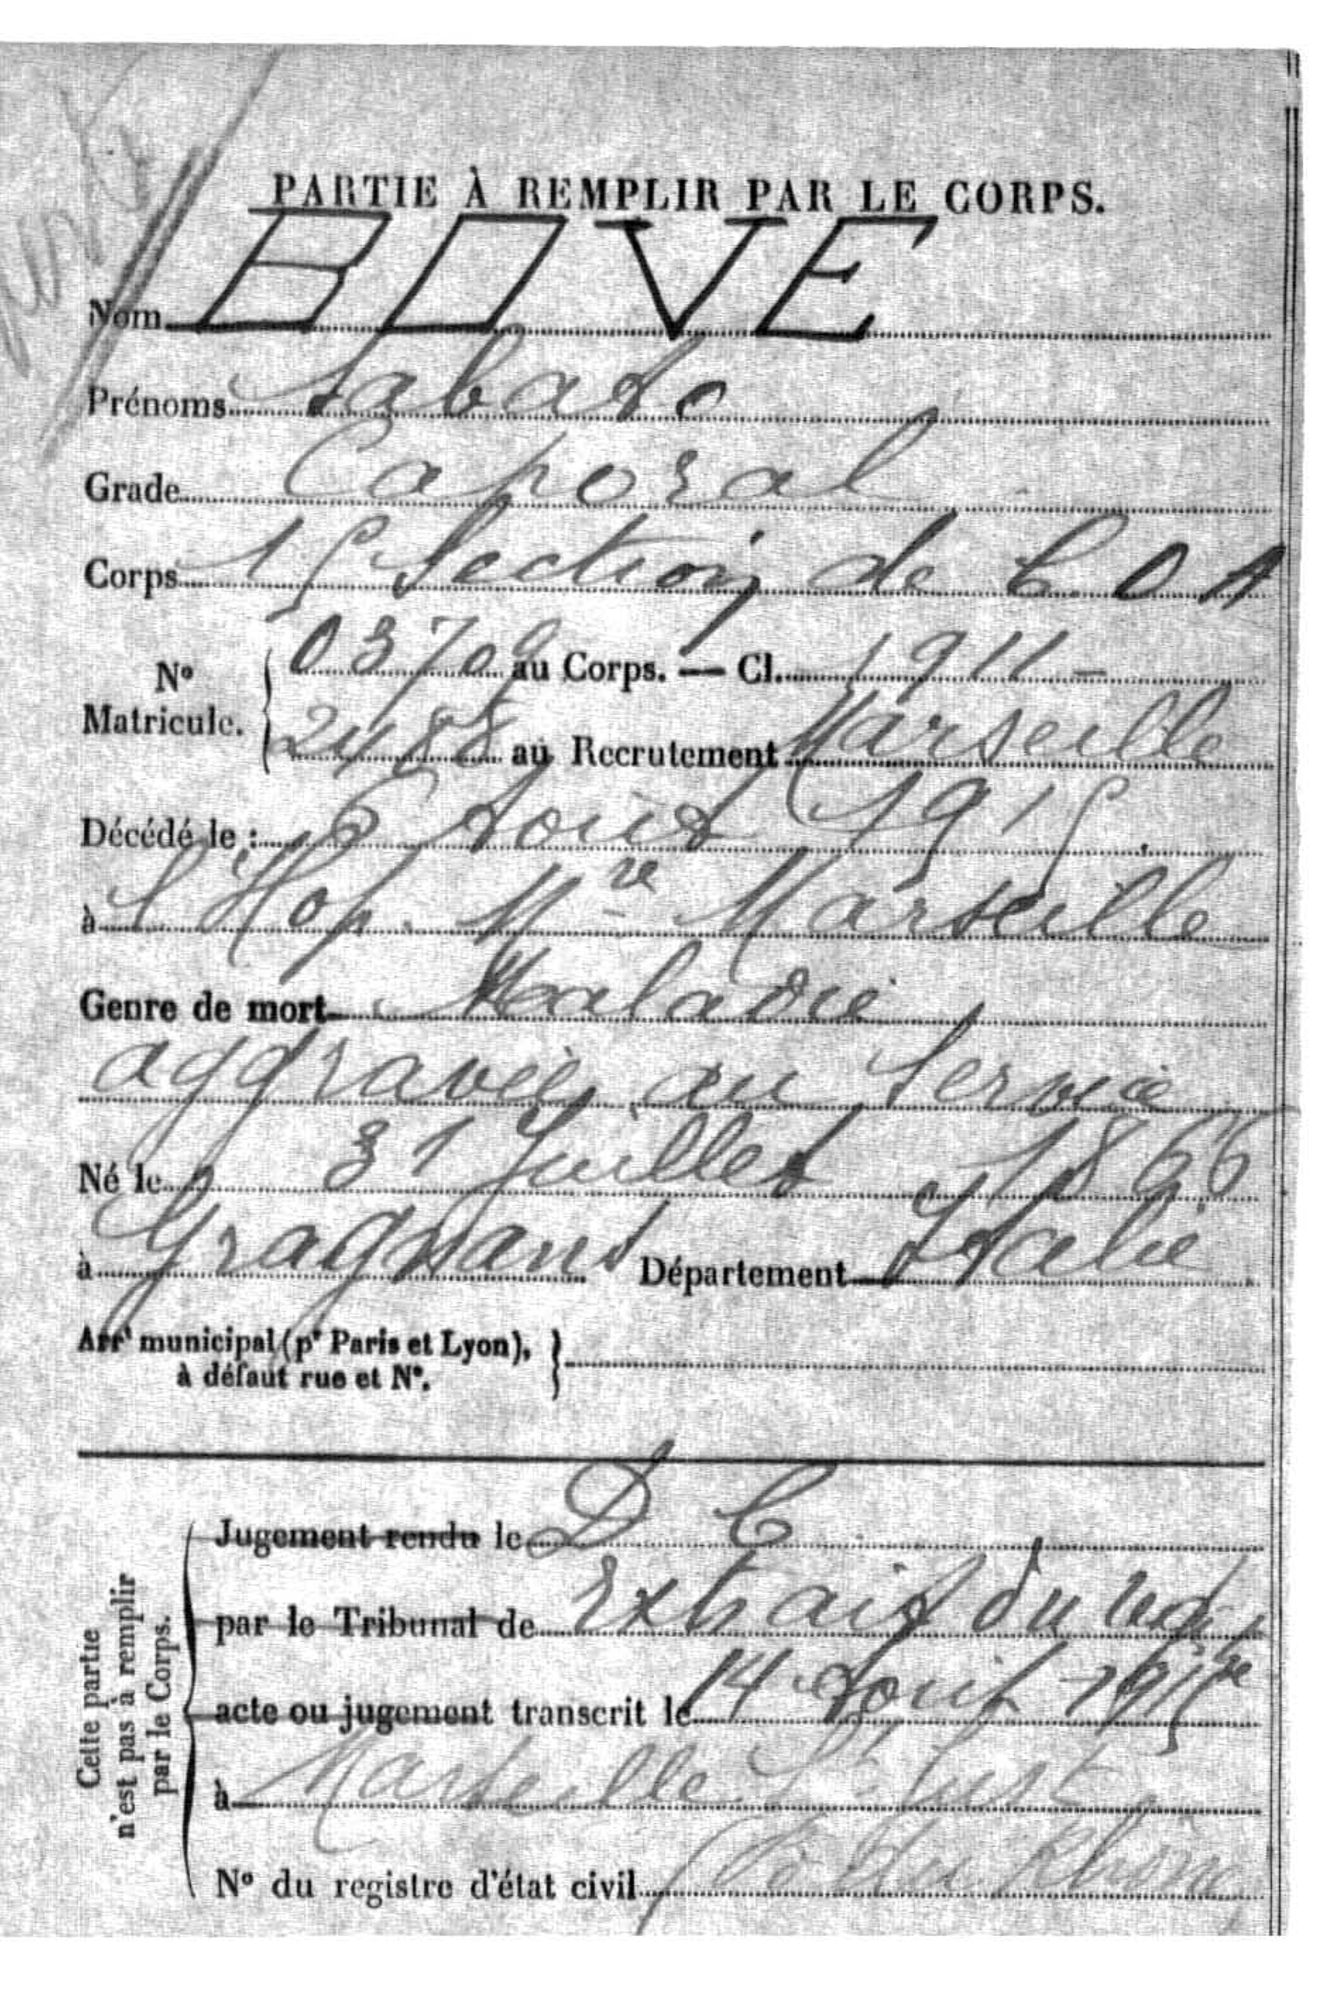 PARTIE À REMPLIR PAR LE CORPS.
Nom BOVE
Prénoms Sabato
Grade Caporal
Corps 15e Section de C.O.A
N° Matricule. 03709 au Corps. — Cl. 1911 -
2488 au Recrutement Marseille
Décédé le : 6 Août 1915
à l'Hop. Mre Marseille
Genre de mort Maladie
aggravée au Service
Né le 31 Juillet 1866
à Gragnano Département Italie
Arrt municipal (pr Paris et Lyon),
à défaut rue et N°.
Cette partie
n'est pas à remplir
par le Corps.
Jugement rendu le D C
par le Tribunal de Extrait du
acte ou jugement transcrit le 14 Août 1915
à Marseille St Just
N° du registre d'état civil (B. du Rhône)